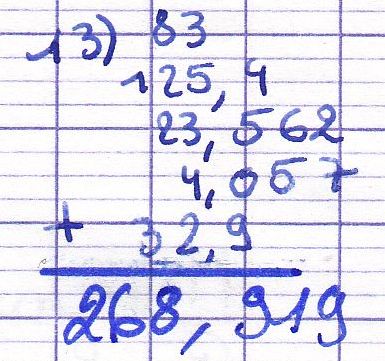 13) 83
125,4
23,562
4,057
+ 32,9
268,919